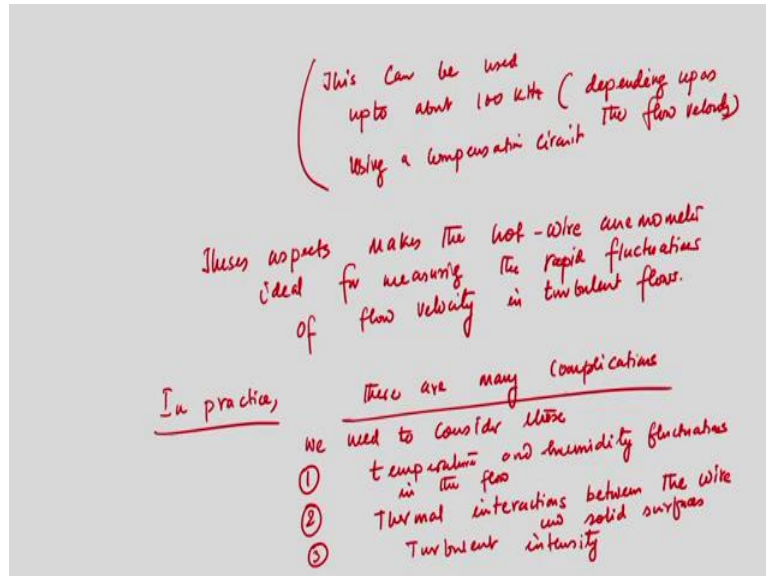 This can be used
upto about 100 kHz ( depending upon
the flow velocity)
Using a compensation circuit
Theses aspects makes the hot-wire anemometer
ideal for measuring the rapid fluctuations
of flow velocity in turbulent flows.
In practice, there are many complications
we need to consider these
① temperature and humidity fluctuations
in the flow
② Thermal interactions between the wire
and solid surfaces
③ Turbulent intensity